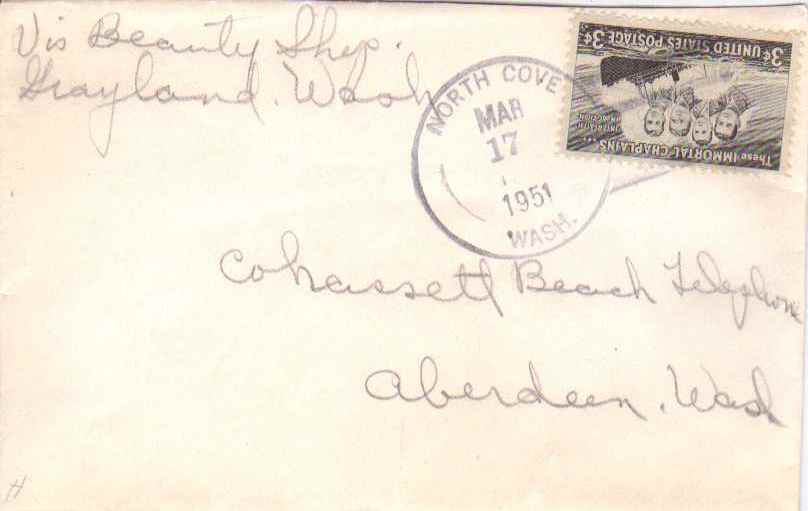 Vis Beauty Shop.
Grayland. Wash
NORTH COVE
MAR
17
1951
WASH.
3¢ UNITED STATES POSTAGE 3¢
These IMMORTAL CHAPLAINS ...
INTERFAITH
IN ACTION
Cohassett Beach Telephone
Aberdeen. Wash
H